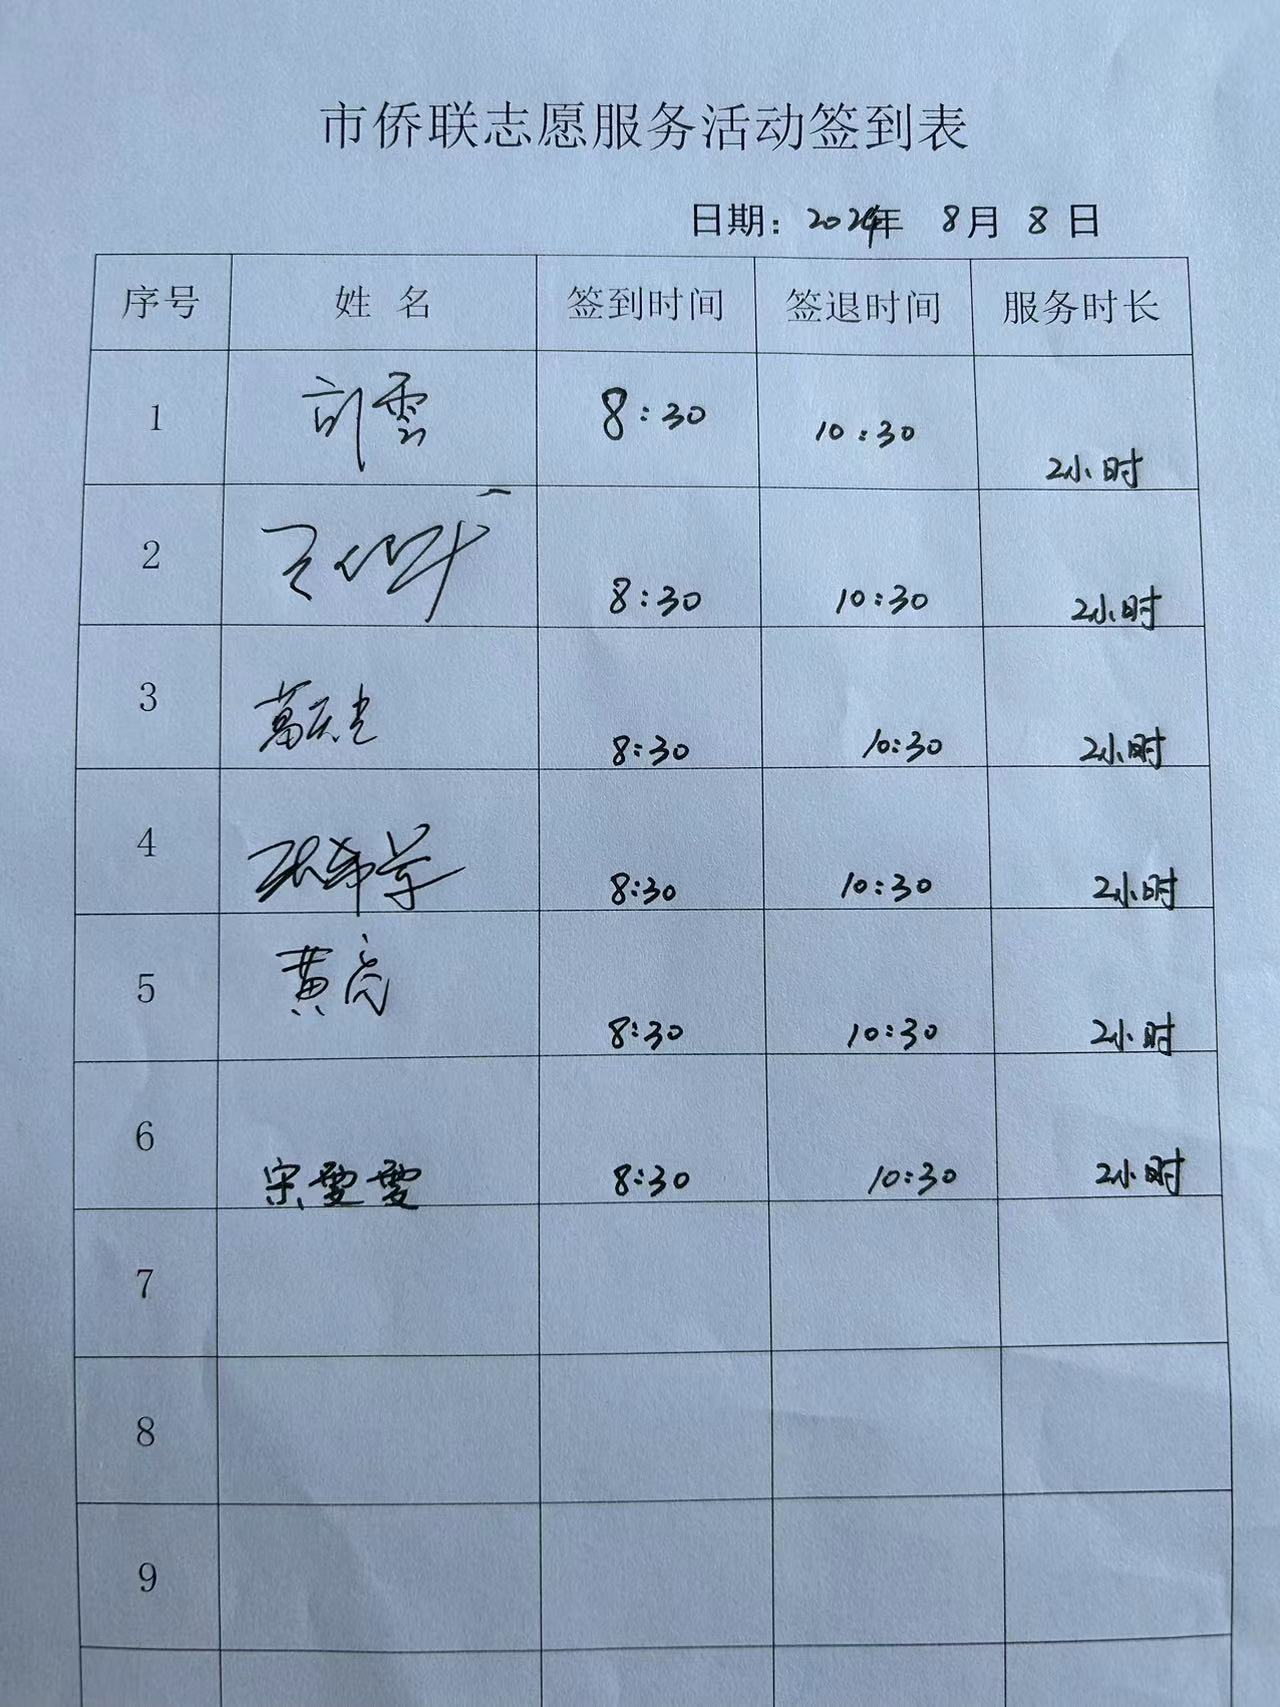 市侨联志愿服务活动签到表
日期：2024年 8月 8日
序号 姓 名 签到时间 签退时间 服务时长
1 刘雲 8:30 10:30 2小时
2 8:30 10:30 2小时
3 8:30 10:30 2小时
4 8:30 10:30 2小时
5 黄亮 8:30 10:30 2小时
6 宋雯雯 8:30 10:30 2小时
7
8
9